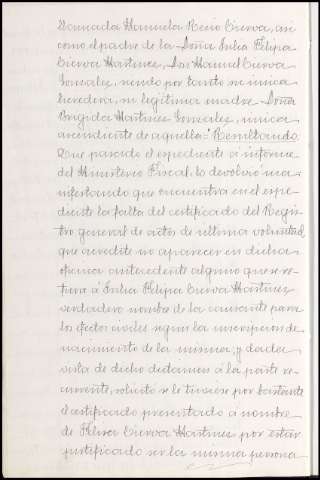 llamada Manuela Recio Cuerva, así
como el padre de la Doña Julia Felipa
Cuerva Martinez, Don Manuel Cuerva
Gonzalez, siendo por tanto su única
heredera, su legítima madre Doña
Brigida Martinez Gonzalez, única
ascendiente de aquella: Resultando
Que pasado el expediente á informe
del Ministerio Fiscal, lo devolvió ma-
nifestando que encuentra en el expe-
diente la falta del certificado del Regis-
tro general de actos de última voluntad
que acredite no aparecer en dicha
oficina antecedente alguno que se re-
fiera á Julia Felipa Cuerva Martinez
verdadero nombre de la causante para
los efectos civiles segun la inscripcion de
nacimiento de la misma; y dada
vista de dicho dictamen á la parte re-
currente, solicitó se le tuviese por bastante
el certificado presentado á nombre
de Felisa Cuerva Martinez por estar
justificado ser la misma persona